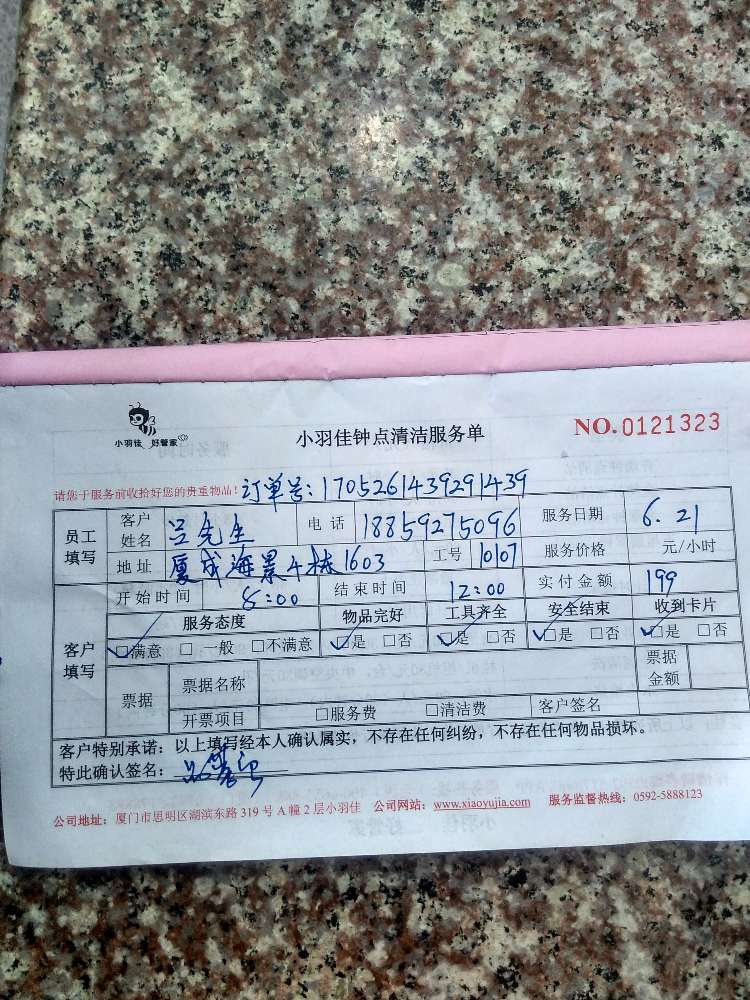 小羽佳 好管家
小羽佳钟点清洁服务单
NO.0121323
请您于服务前收拾好您的贵重物品!
订单号:1705261439291439
员工填写 客户姓名 吕先生 电话 18859275096 服务日期 6.21
地址 厦成海景4栋1603 工号 10107 服务价格 元/小时
开始时间 8:00 结束时间 12:00 实付金额 199
客户填写 服务态度 物品完好 工具齐全 安全结束 收到卡片
☑满意 □一般 □不满意 ☑是 □否 ☑是 □否 ☑是 □否 ☑是 □否
票据 票据名称 票据金额
开票项目 □服务费 □清洁费 客户签名
客户特别承诺:以上填写经本人确认属实,不存在任何纠纷,不存在任何物品损坏。
特此确认签名:
公司地址:厦门市思明区湖滨东路319号A幢2层小羽佳 公司网站:www.xiaoyujia.com 服务监督热线:0592-5888123